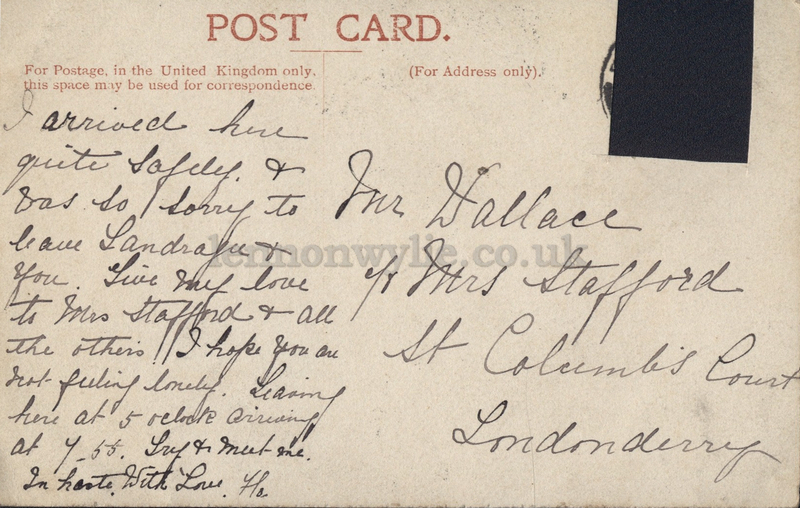 POST CARD.
For Postage, in the United Kingdom only,
this space may be used for correspondence
(For Address only).
I arrived here
quite safely. &
was so sorry to
leave &
you. Give my love
to Mrs Stafford & all
the others. I hope you are
not feeling lonely. Leaving
here at 5 oclock arriving
at 7-55. Try & meet me.
In haste. With Love.
Mr Wallace
c/o Mrs Stafford
St Columb's Court
Londonderry
lennonwylie.co.uk